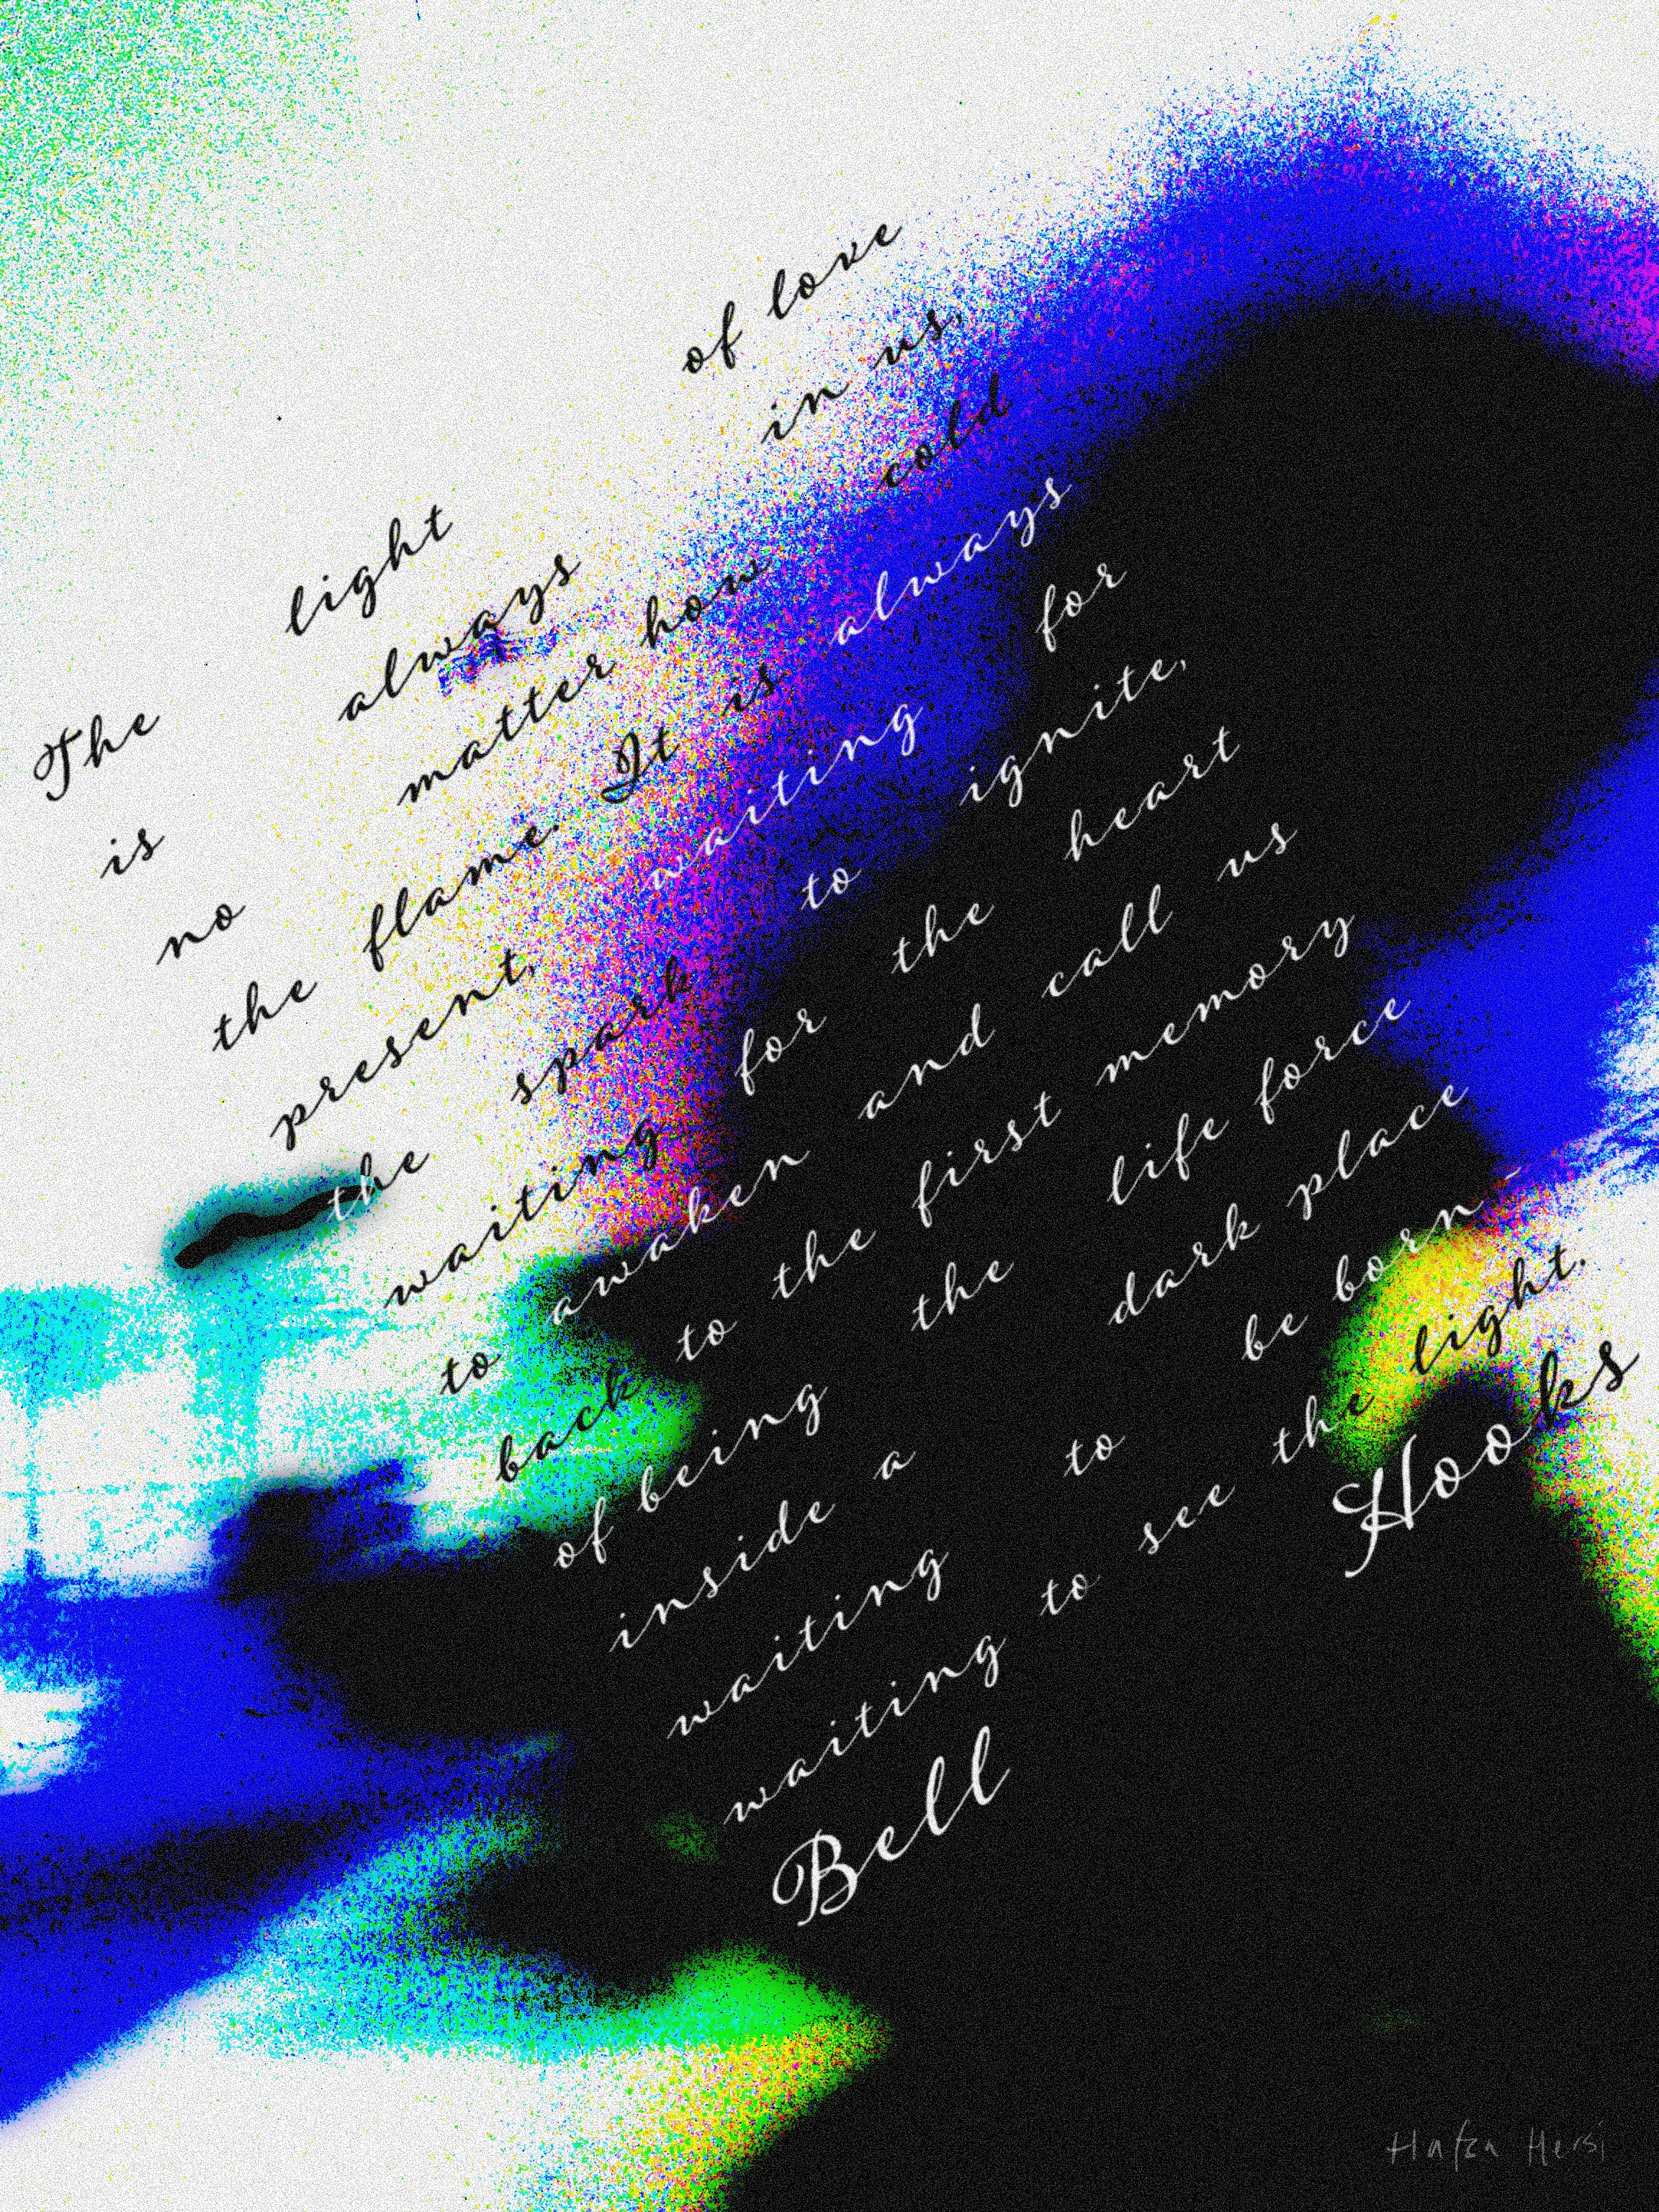 The light of love
is always in us,
no matter how cold
the flame. It is always
present, waiting for
the spark to ignite,
waiting for the heart
to awaken and call us
back to the first memory
of being the life force
inside a dark place
waiting to be born -
waiting to see the light.
Bell Hooks
Hafza Hersi